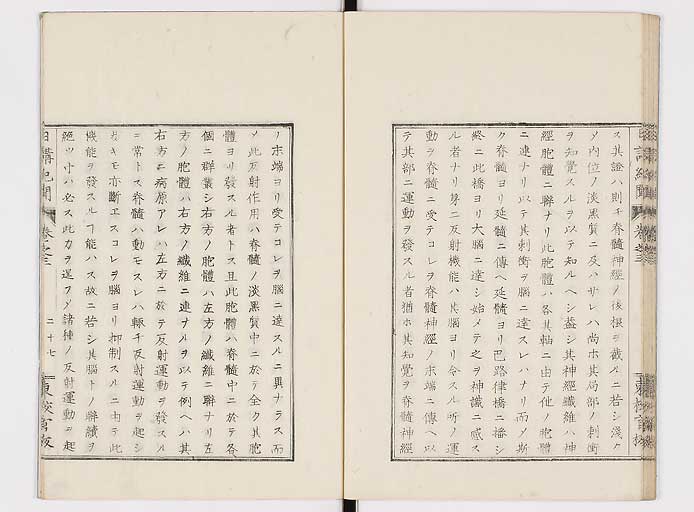 ス其證ハ則チ脊髓神經ノ後根ヲ截ルニ若シ淺ク
メ内位ノ淡黒質ニ及ハサレハ尚ホ其局部ノ刺衝
ヲ知覺スルヲ以テ知ルヘシ蓋シ其神經纖維ハ神
經胞體ニ聯ナリ此胞體ハ各其軸ニ由テ他ノ胞體
ニ連ナリ以テ其刺衝ヲ腦ニ達スレハナリ而ノ斯
ク脊髓ヨリ延髓ニ傳ヘ延髓ヨリ巴路律橋ニ播シ
終ニ此橋ヨリ大腦ニ達シ始メテ之ヲ神識ニ感ス
ル者ナリ第二反射機能ハ其腦ヨリ令スル所ノ運
動ヲ脊髓ニ受テコレヲ脊髓神經ノ末端ニ傳ヘ以
テ其部ニ運動ヲ發スル者猶ホ其知覺ヲ脊髓神經
ノ末端ヨリ受テコレヲ腦ニ達スルニ異ナラス而
メ此反射作用ハ脊髓ノ淡黒質中ニ於テ全ク其胞
體ヨリ發スル者トス且此胞體ハ脊髓中ニ於テ各
個ニ群叢シ右方ノ胞體ハ左方ノ纖維ニ聯ナリ左
方ノ胞體ハ右方ノ纖維ニ連ナルヲ以テ例ヘハ其
右方ニ病原アレハ左方ニ於テ反射運動ヲ發スル
ヿ常トス脊髓ハ動モスレハ輒チ反射運動ヲ起シ
易キモ亦斷エスコレヲ腦ヨリ抑制スルニ由テ此
機能ヲ發スルヿ能ハス故ニ若シ其腦トノ聯續ヲ
絶ツ寸ハ必ス此力ヲ逞フメ諸種ノ反射運動ヲ起
日講紀聞 卷之三 二十七 東校官版